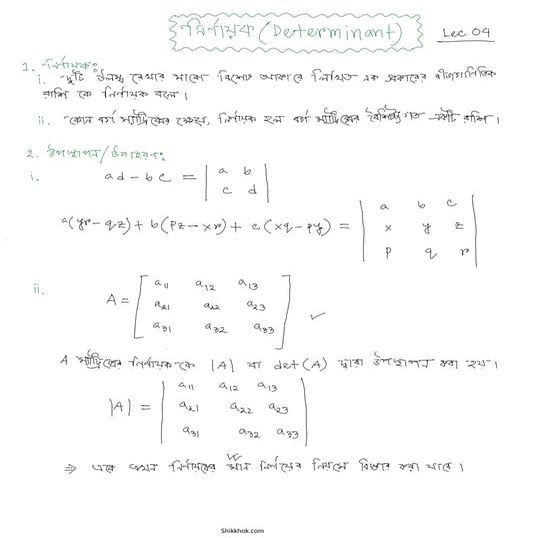 নির্ণায়ক (Determinant)
Lec 04
1. নির্ণায়কঃ
i. দুটি উলম্ব রেখার মাঝে বিশেষ আকারে লিখিত এক প্রকারের বীজগাণিতিক
রাশি কে নির্ণায়ক বলে।
ii. কোন বর্গ ম্যাট্রিক্সের ক্ষেত্রে, নির্ণায়ক হল বর্গ ম্যাট্রিক্সের বৈশিষ্ট্যগত একটি রাশি।
2. উপস্থাপন/উদাহরণঃ
i. ad - bc = | a b |
| c d |
a(yr - qz) + b(pz - xr) + c(xq - py) = | a b c |
| x y z |
| p q r |
ii. A = [ a11 a12 a13 ]
[ a21 a22 a23 ]
[ a31 a32 a33 ] ✓
A ম্যাট্রিক্সের নির্ণায়ক কে |A| বা det(A) দ্বারা উপস্থাপন করা হয়।
|A| = | a11 a12 a13 |
| a21 a22 a23 |
| a31 a32 a33 |
⇒ একে এখন নির্ণায়কের মান নির্ণয়ের নিয়মে বিস্তার করা যাবে।
Shikkhok.com